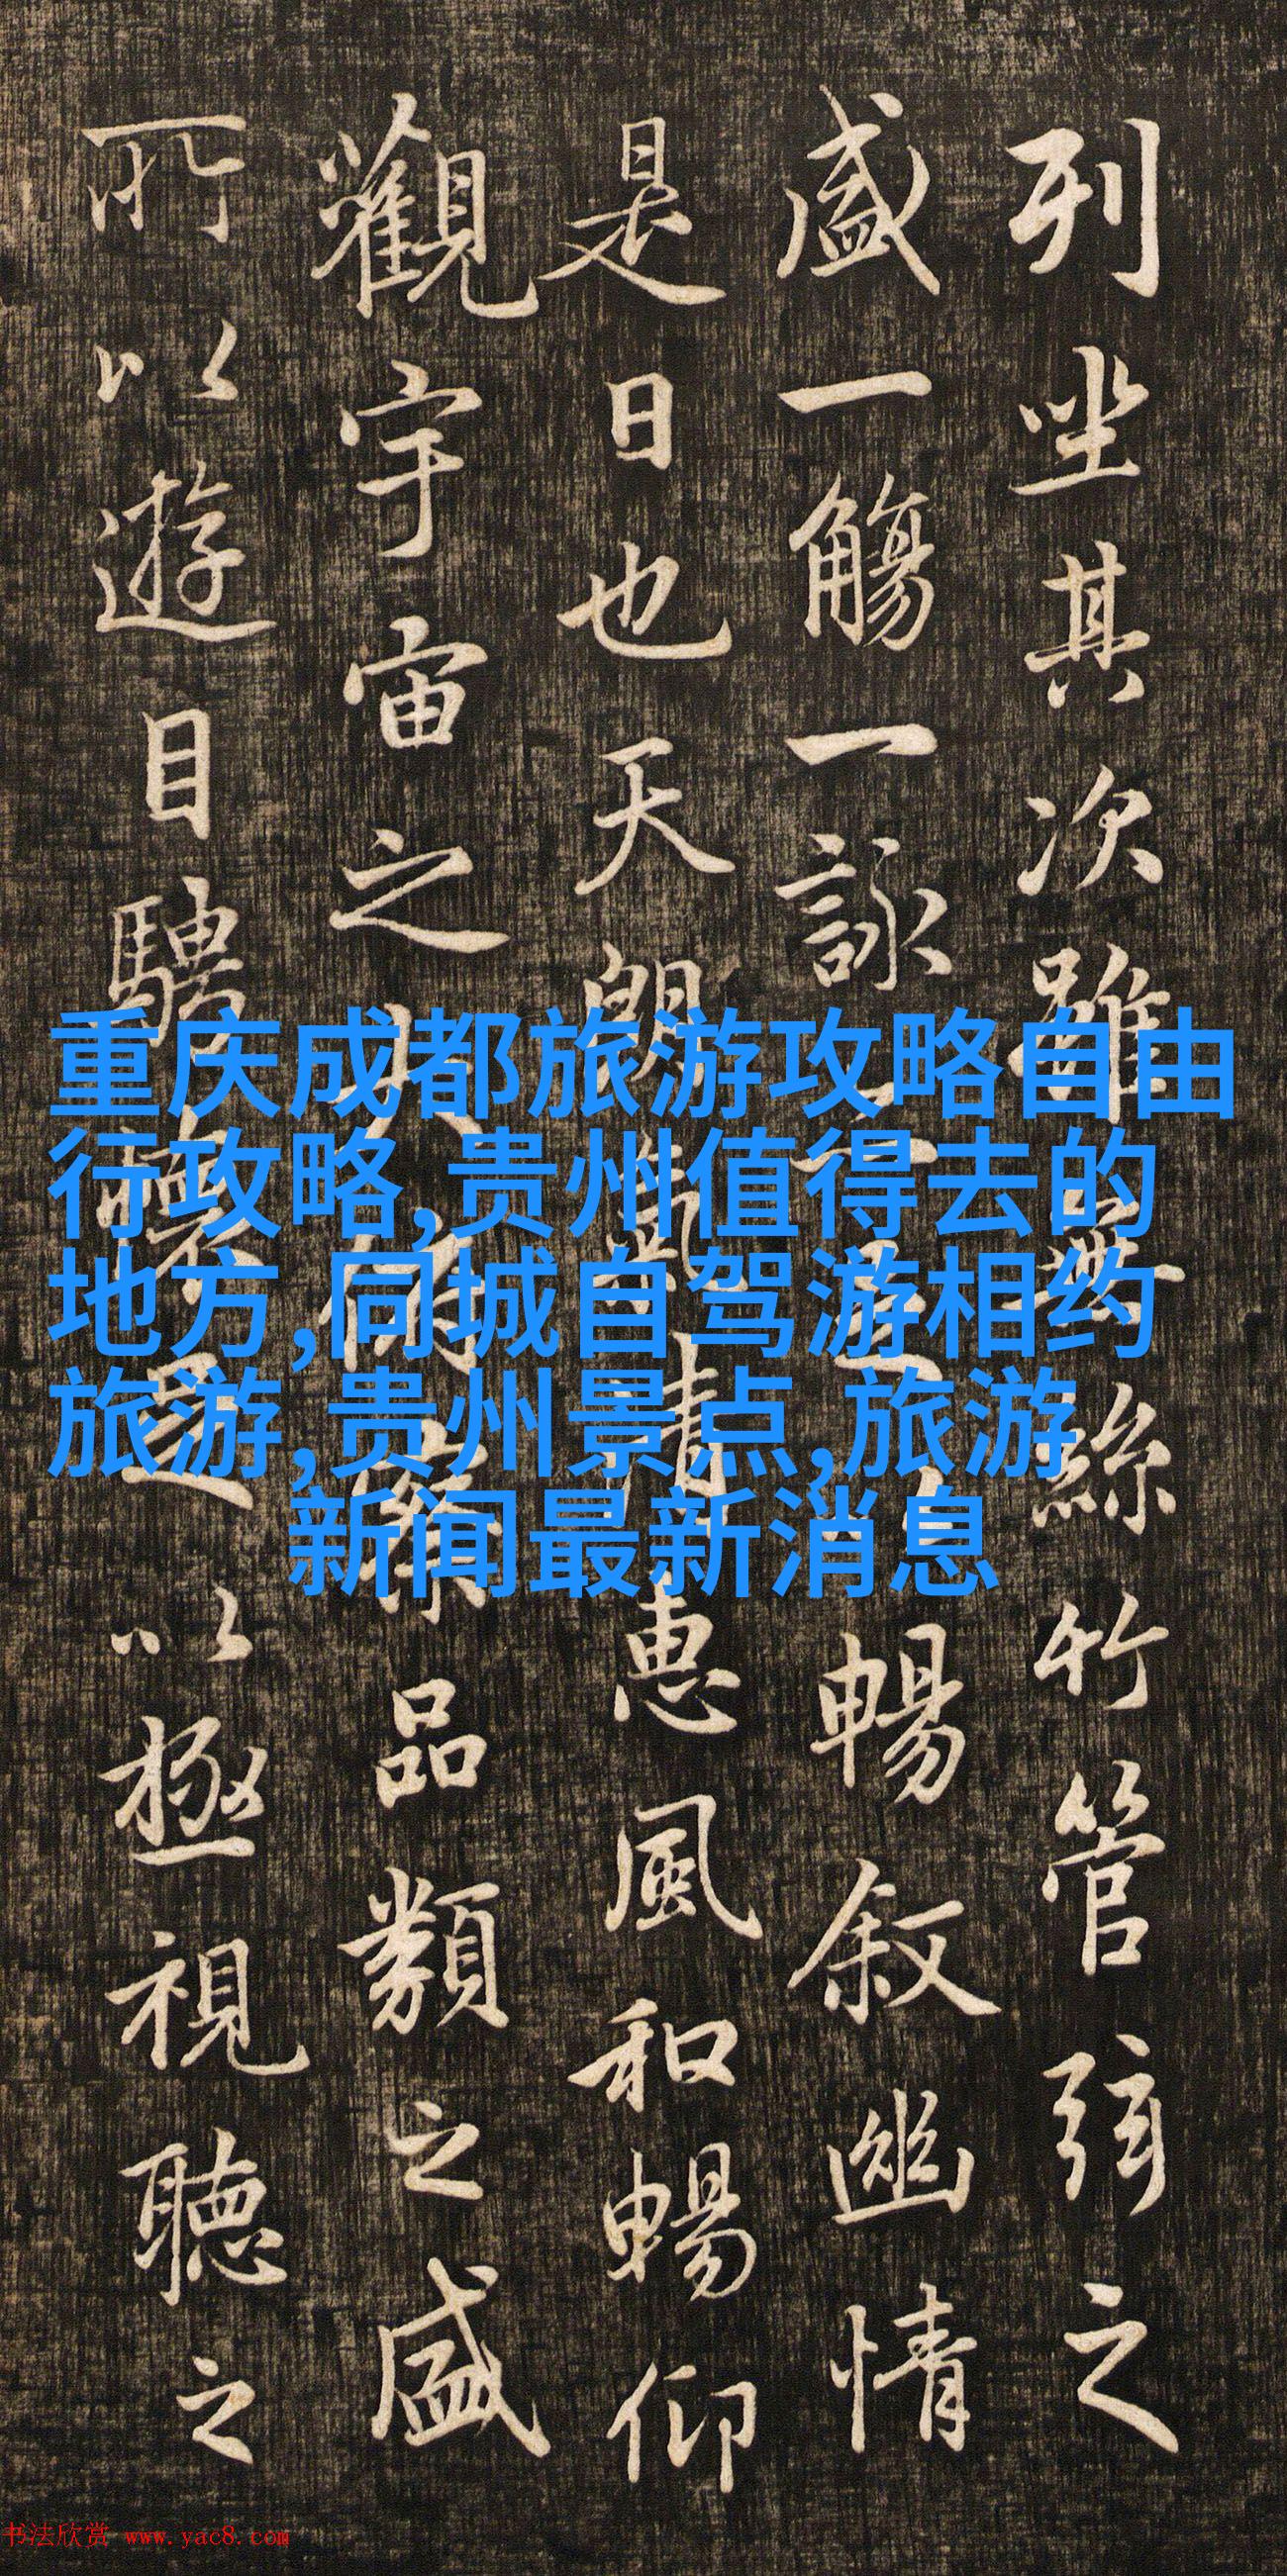 列坐其次雖無絲竹管弦之
盛一觴一詠亦足以暢叙幽情
是日也天朗氣清惠風和暢仰
觀宇宙之大俯察品類之盛
所以遊目騁懷足以極視聽之
重庆成都旅游攻略自由
行攻略,贵州值得去的
地方,同城自驾游相约
旅游,贵州景点,旅游
新闻最新消息
书法欣赏 www.yac8.com